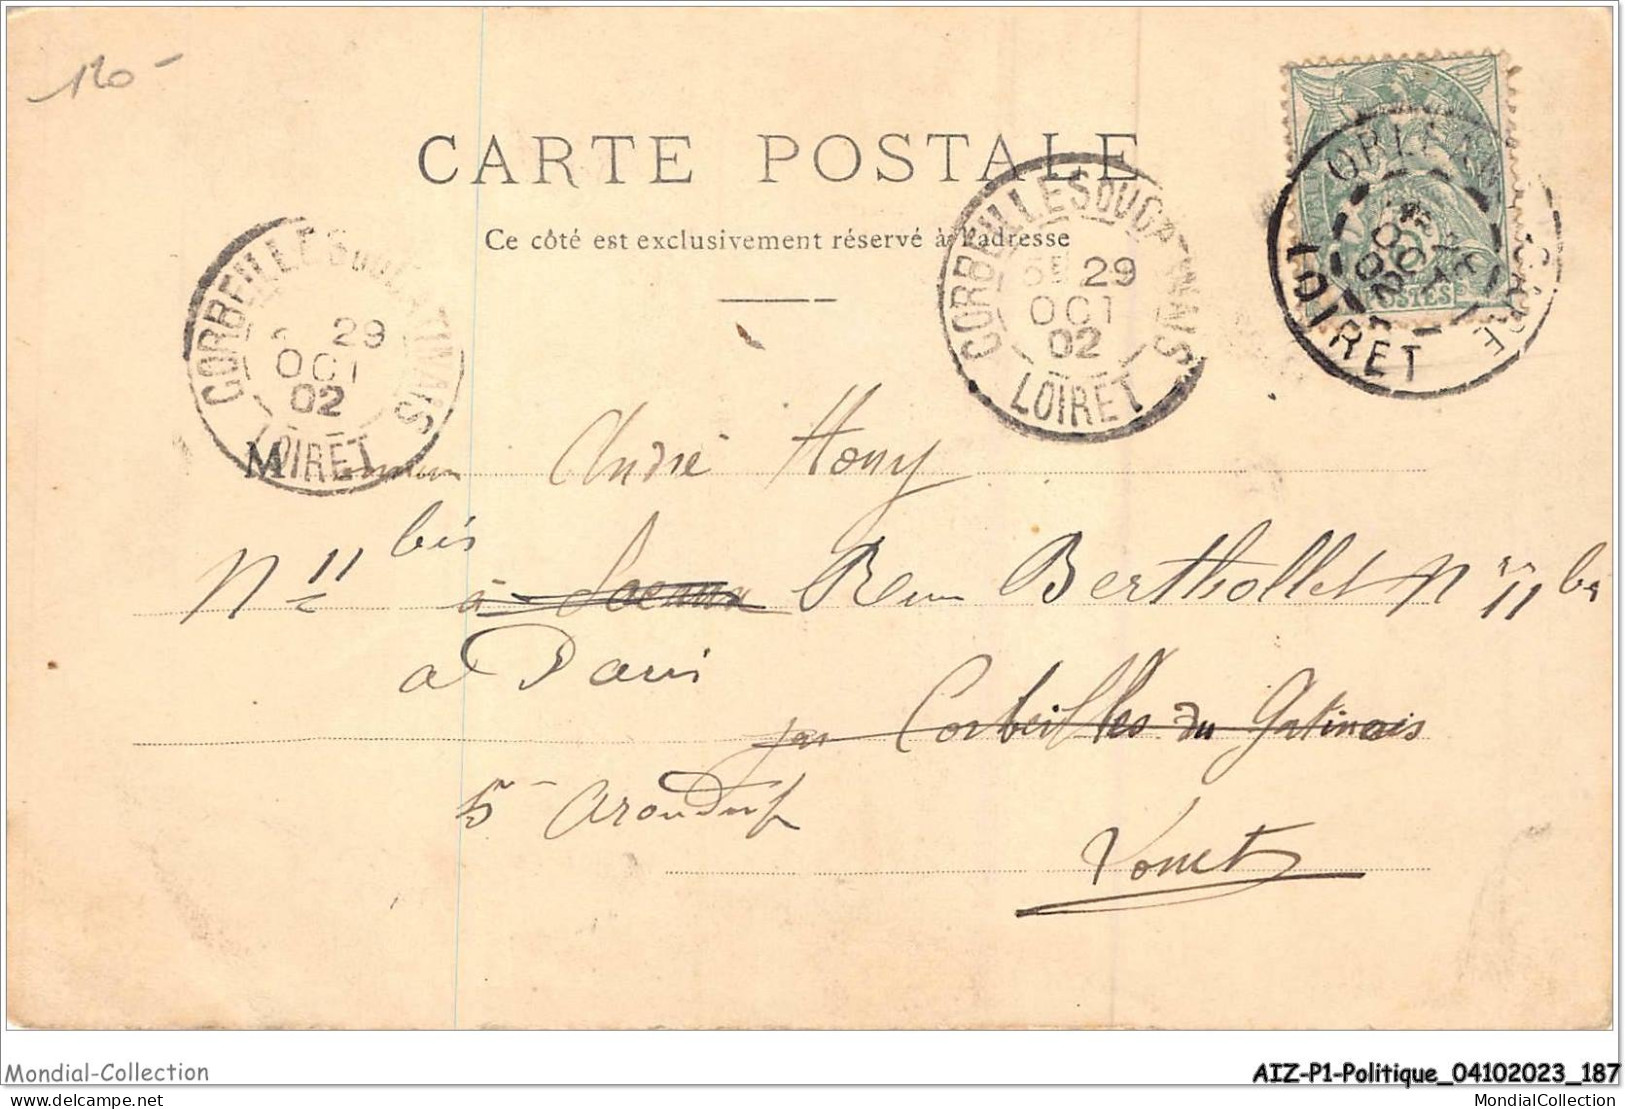 120-
CARTE POSTALE
Ce côté est exclusivement réservé à l'adresse
CORBEILLES DU GATINAIS
29
OCT
02
LOIRET
CORBEILLES DU GATINAIS
5E 29
OCT
02
LOIRET
ORLEANS GARE
OCT
02
LOIRET
POSTES
M André
N° 11 bis à Rue Berthollet N° 11 bis
a Paris
par Corbeilles du Gatinais
5
Mondial-Collection
AIZ-P1-Politique_04102023_187
delcampe.net
MondialCollection